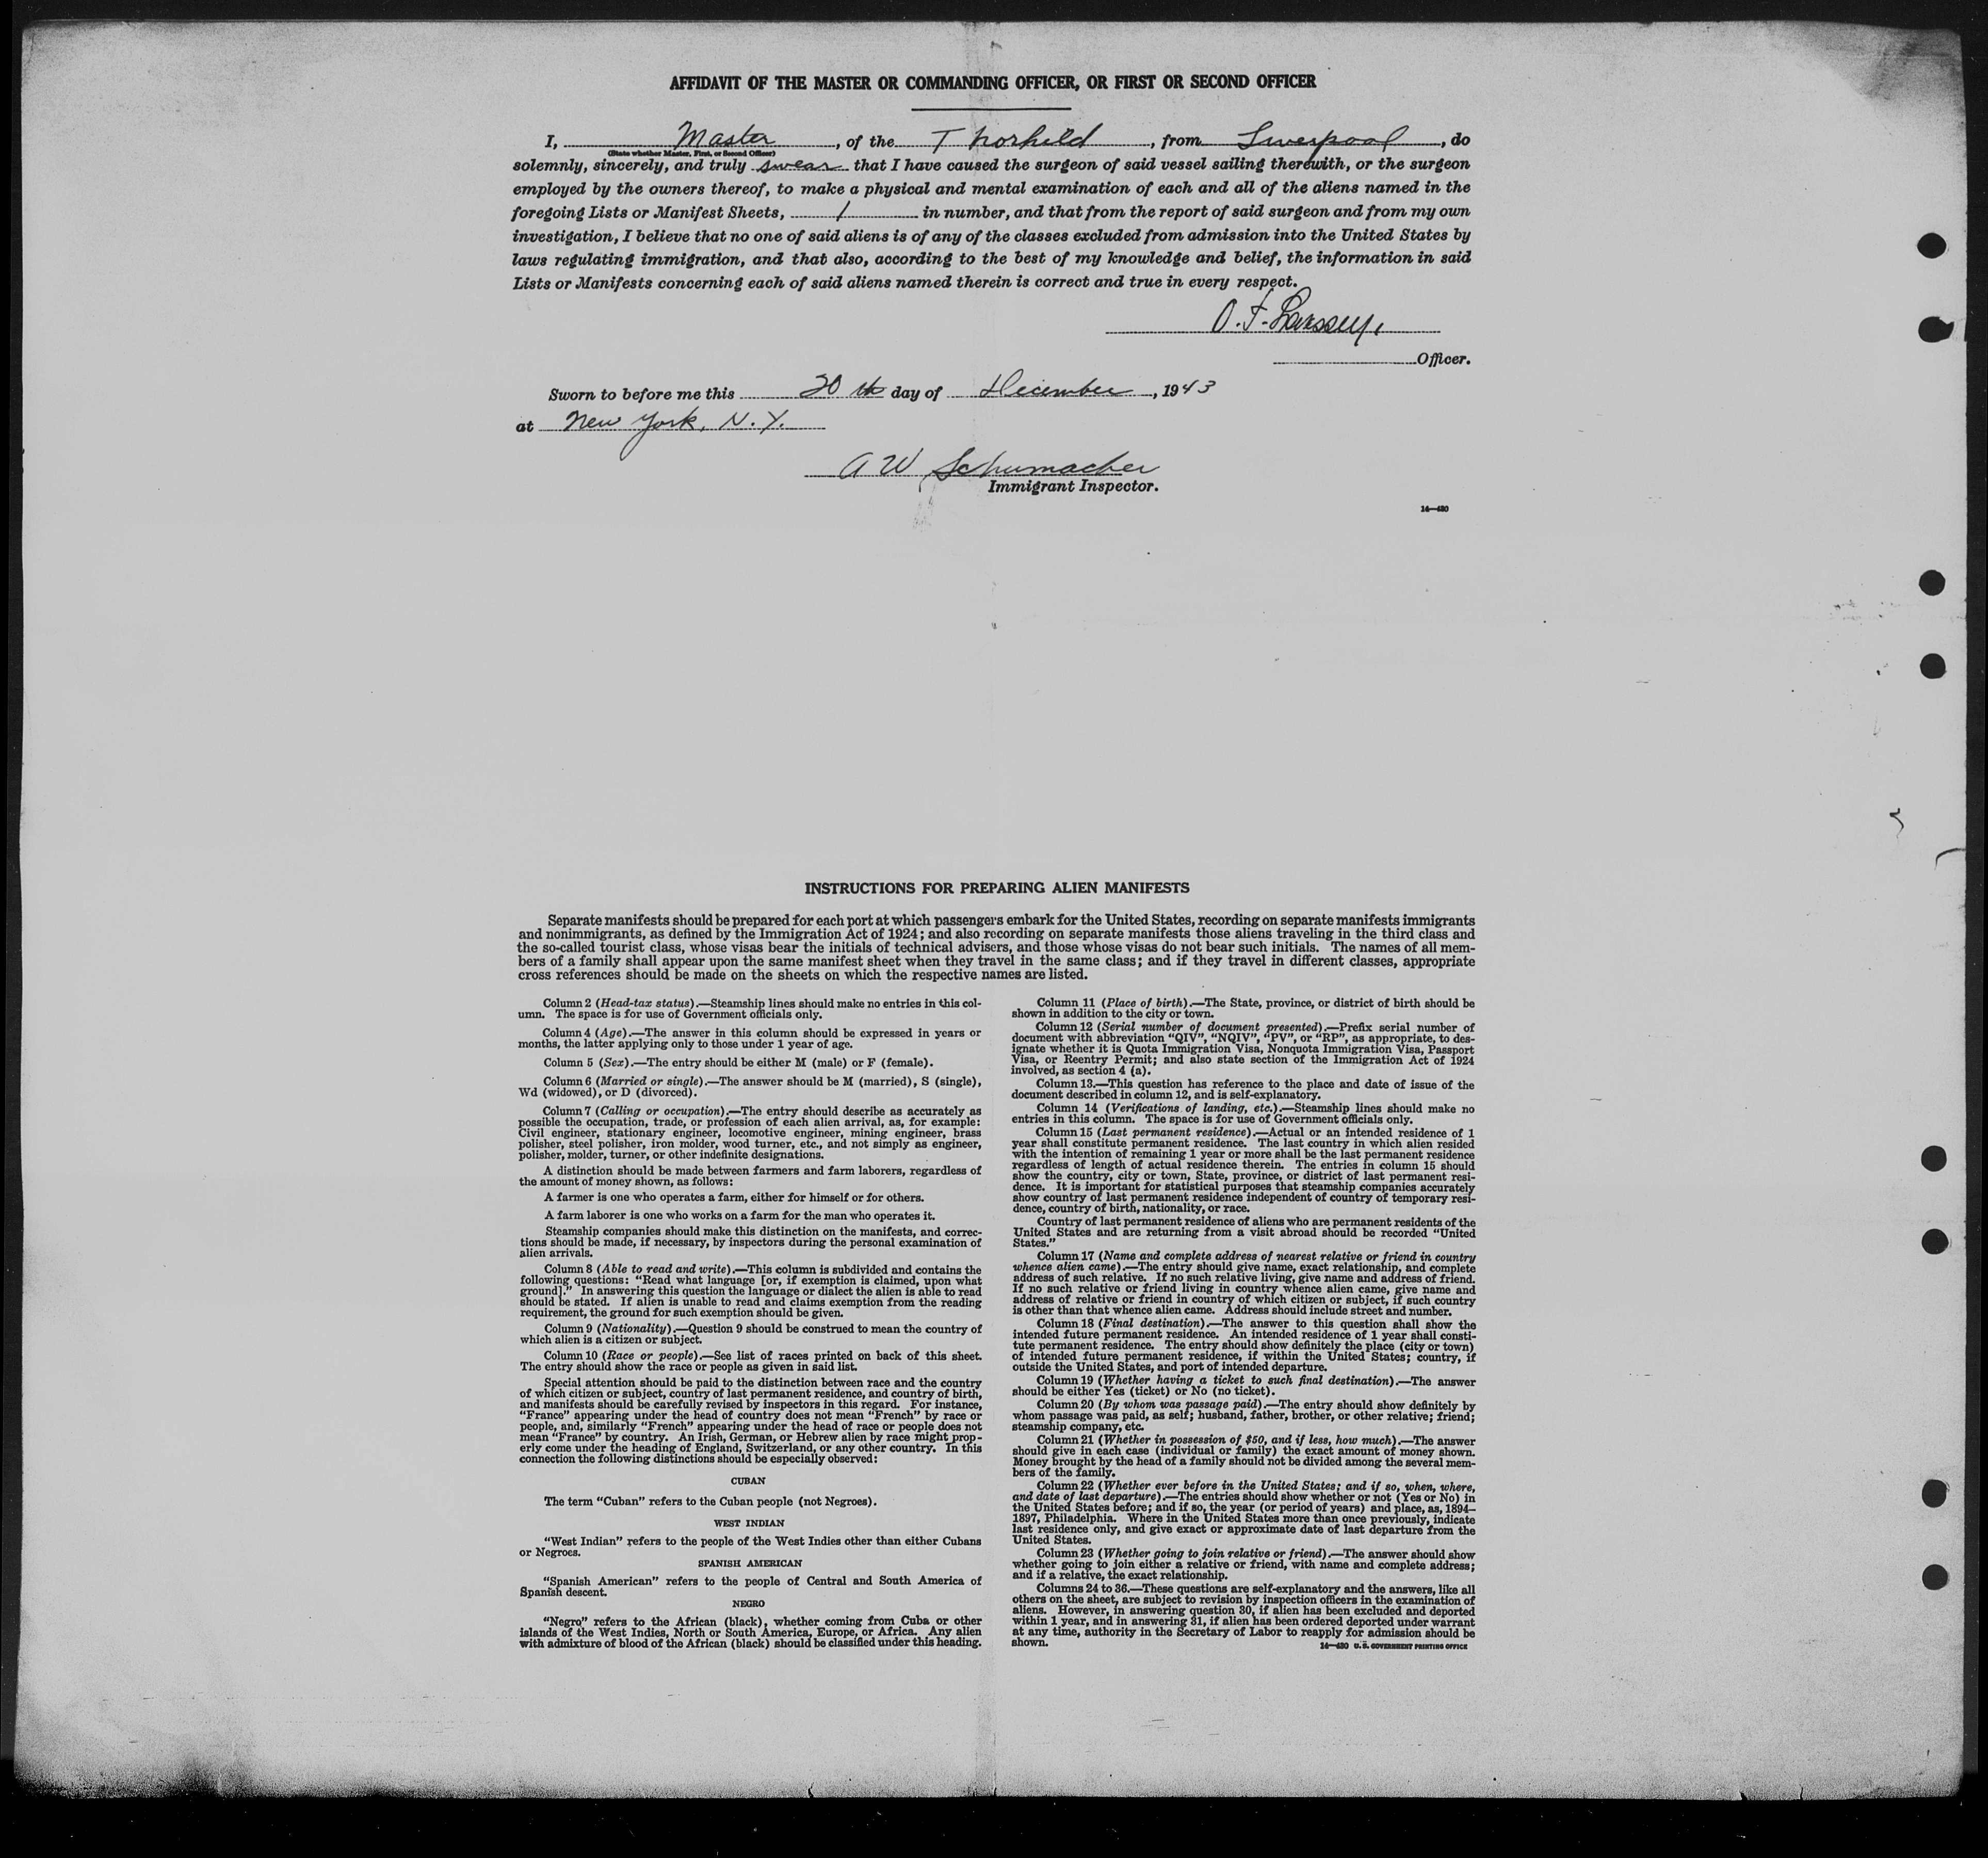 AFFIDAVIT OF THE MASTER OR COMMANDING OFFICER, OR FIRST OR SECOND OFFICER
I, Master, of the Thorhild, from Liverpool, do
(State whether Master, First, or Second Officer)
solemnly, sincerely, and truly swear that I have caused the surgeon of said vessel sailing therewith, or the surgeon
employed by the owners thereof, to make a physical and mental examination of each and all of the aliens named in the
foregoing Lists or Manifest Sheets, 1 in number, and that from the report of said surgeon and from my own
investigation, I believe that no one of said aliens is of any of the classes excluded from admission into the United States by
laws regulating immigration, and that also, according to the best of my knowledge and belief, the information in said
Lists or Manifests concerning each of said aliens named therein is correct and true in every respect.
O. F.
Officer.
Sworn to before me this 20 th day of December, 1943
at New York, N. Y.
A W Schumacher
Immigrant Inspector.
14—430
INSTRUCTIONS FOR PREPARING ALIEN MANIFESTS
Separate manifests should be prepared for each port at which passengers embark for the United States, recording on separate manifests immigrants
and nonimmigrants, as defined by the Immigration Act of 1924; and also recording on separate manifests those aliens traveling in the third class and
the so-called tourist class, whose visas bear the initials of technical advisers, and those whose visas do not bear such initials. The names of all mem-
bers of a family shall appear upon the same manifest sheet when they travel in the same class; and if they travel in different classes, appropriate
cross references should be made on the sheets on which the respective names are listed.
Column 2 (Head-tax status).—Steamship lines should make no entries in this col-
umn. The space is for use of Government officials only.
Column 4 (Age).—The answer in this column should be expressed in years or
months, the latter applying only to those under 1 year of age.
Column 5 (Sex).—The entry should be either M (male) or F (female).
Column 6 (Married or single).—The answer should be M (married), S (single),
Wd (widowed), or D (divorced).
Column 7 (Calling or occupation).—The entry should describe as accurately as
possible the occupation, trade, or profession of each alien arrival, as, for example:
Civil engineer, stationary engineer, locomotive engineer, mining engineer, brass
polisher, steel polisher, iron molder, wood turner, etc., and not simply as engineer,
polisher, molder, turner, or other indefinite designations.
A distinction should be made between farmers and farm laborers, regardless of
the amount of money shown, as follows:
A farmer is one who operates a farm, either for himself or for others.
A farm laborer is one who works on a farm for the man who operates it.
Steamship companies should make this distinction on the manifests, and correc-
tions should be made, if necessary, by inspectors during the personal examination of
alien arrivals.
Column 8 (Able to read and write).—This column is subdivided and contains the
following questions: "Read what language [or, if exemption is claimed, upon what
ground]." In answering this question the language or dialect the alien is able to read
should be stated. If alien is unable to read and claims exemption from the reading
requirement, the ground for such exemption should be given.
Column 9 (Nationality).—Question 9 should be construed to mean the country of
which alien is a citizen or subject.
Column 10 (Race or people).—See list of races printed on back of this sheet.
The entry should show the race or people as given in said list.
Special attention should be paid to the distinction between race and the country
of which citizen or subject, country of last permanent residence, and country of birth,
and manifests should be carefully revised by inspectors in this regard. For instance,
"France" appearing under the head of country does not mean "French" by race or
people, and, similarly "French" appearing under the head of race or people does not
mean "France" by country. An Irish, German, or Hebrew alien by race might prop-
erly come under the heading of England, Switzerland, or any other country. In this
connection the following distinctions should be especially observed:
CUBAN
The term "Cuban" refers to the Cuban people (not Negroes).
WEST INDIAN
"West Indian" refers to the people of the West Indies other than either Cubans
or Negroes.
SPANISH AMERICAN
"Spanish American" refers to the people of Central and South America of
Spanish descent.
NEGRO
"Negro" refers to the African (black), whether coming from Cuba or other
islands of the West Indies, North or South America, Europe, or Africa. Any alien
with admixture of blood of the African (black) should be classified under this heading.
Column 11 (Place of birth).—The State, province, or district of birth should be
shown in addition to the city or town.
Column 12 (Serial number of document presented).—Prefix serial number of
document with abbreviation "QIV", "NQIV", "PV", or "RP", as appropriate, to des-
ignate whether it is Quota Immigration Visa, Nonquota Immigration Visa, Passport
Visa, or Reentry Permit; and also state section of the Immigration Act of 1924
involved, as section 4 (a).
Column 13.—This question has reference to the place and date of issue of the
document described in column 12, and is self-explanatory.
Column 14 (Verifications of landing, etc.).—Steamship lines should make no
entries in this column. The space is for use of Government officials only.
Column 15 (Last permanent residence).—Actual or an intended residence of 1
year shall constitute permanent residence. The last country in which alien resided
with the intention of remaining 1 year or more shall be the last permanent residence
regardless of length of actual residence therein. The entries in column 15 should
show the country, city or town, State, province, or district of last permanent resi-
dence. It is important for statistical purposes that steamship companies accurately
show country of last permanent residence independent of country of temporary resi-
dence, country of birth, nationality, or race.
Country of last permanent residence of aliens who are permanent residents of the
United States and are returning from a visit abroad should be recorded "United
States."
Column 17 (Name and complete address of nearest relative or friend in country
whence alien came).—The entry should give name, exact relationship, and complete
address of such relative. If no such relative living, give name and address of friend.
If no such relative or friend living in country whence alien came, give name and
address of relative or friend in country of which citizen or subject, if such country
is other than that whence alien came. Address should include street and number.
Column 18 (Final destination).—The answer to this question shall show the
intended future permanent residence. An intended residence of 1 year shall consti-
tute permanent residence. The entry should show definitely the place (city or town)
of intended future permanent residence, if within the United States; country, if
outside the United States, and port of intended departure.
Column 19 (Whether having a ticket to such final destination).—The answer
should be either Yes (ticket) or No (no ticket).
Column 20 (By whom was passage paid).—The entry should show definitely by
whom passage was paid, as self; husband, father, brother, or other relative; friend;
steamship company, etc.
Column 21 (Whether in possession of $50, and if less, how much).—The answer
should give in each case (individual or family) the exact amount of money shown.
Money brought by the head of a family should not be divided among the several mem-
bers of the family.
Column 22 (Whether ever before in the United States; and if so, when, where,
and date of last departure).—The entries should show whether or not (Yes or No) in
the United States before; and if so, the year (or period of years) and place, as, 1894–
1897, Philadelphia. Where in the United States more than once previously, indicate
last residence only, and give exact or approximate date of last departure from the
United States.
Column 23 (Whether going to join relative or friend).—The answer should show
whether going to join either a relative or friend, with name and complete address;
and if a relative, the exact relationship.
Columns 24 to 36.—These questions are self-explanatory and the answers, like all
others on the sheet, are subject to revision by inspection officers in the examination of
aliens. However, in answering question 30, if alien has been excluded and deported
within 1 year, and in answering 31, if alien has been ordered deported under warrant
at any time, authority in the Secretary of Labor to reapply for admission should be
shown.
14—430 U.S. GOVERNMENT PRINTING OFFICE